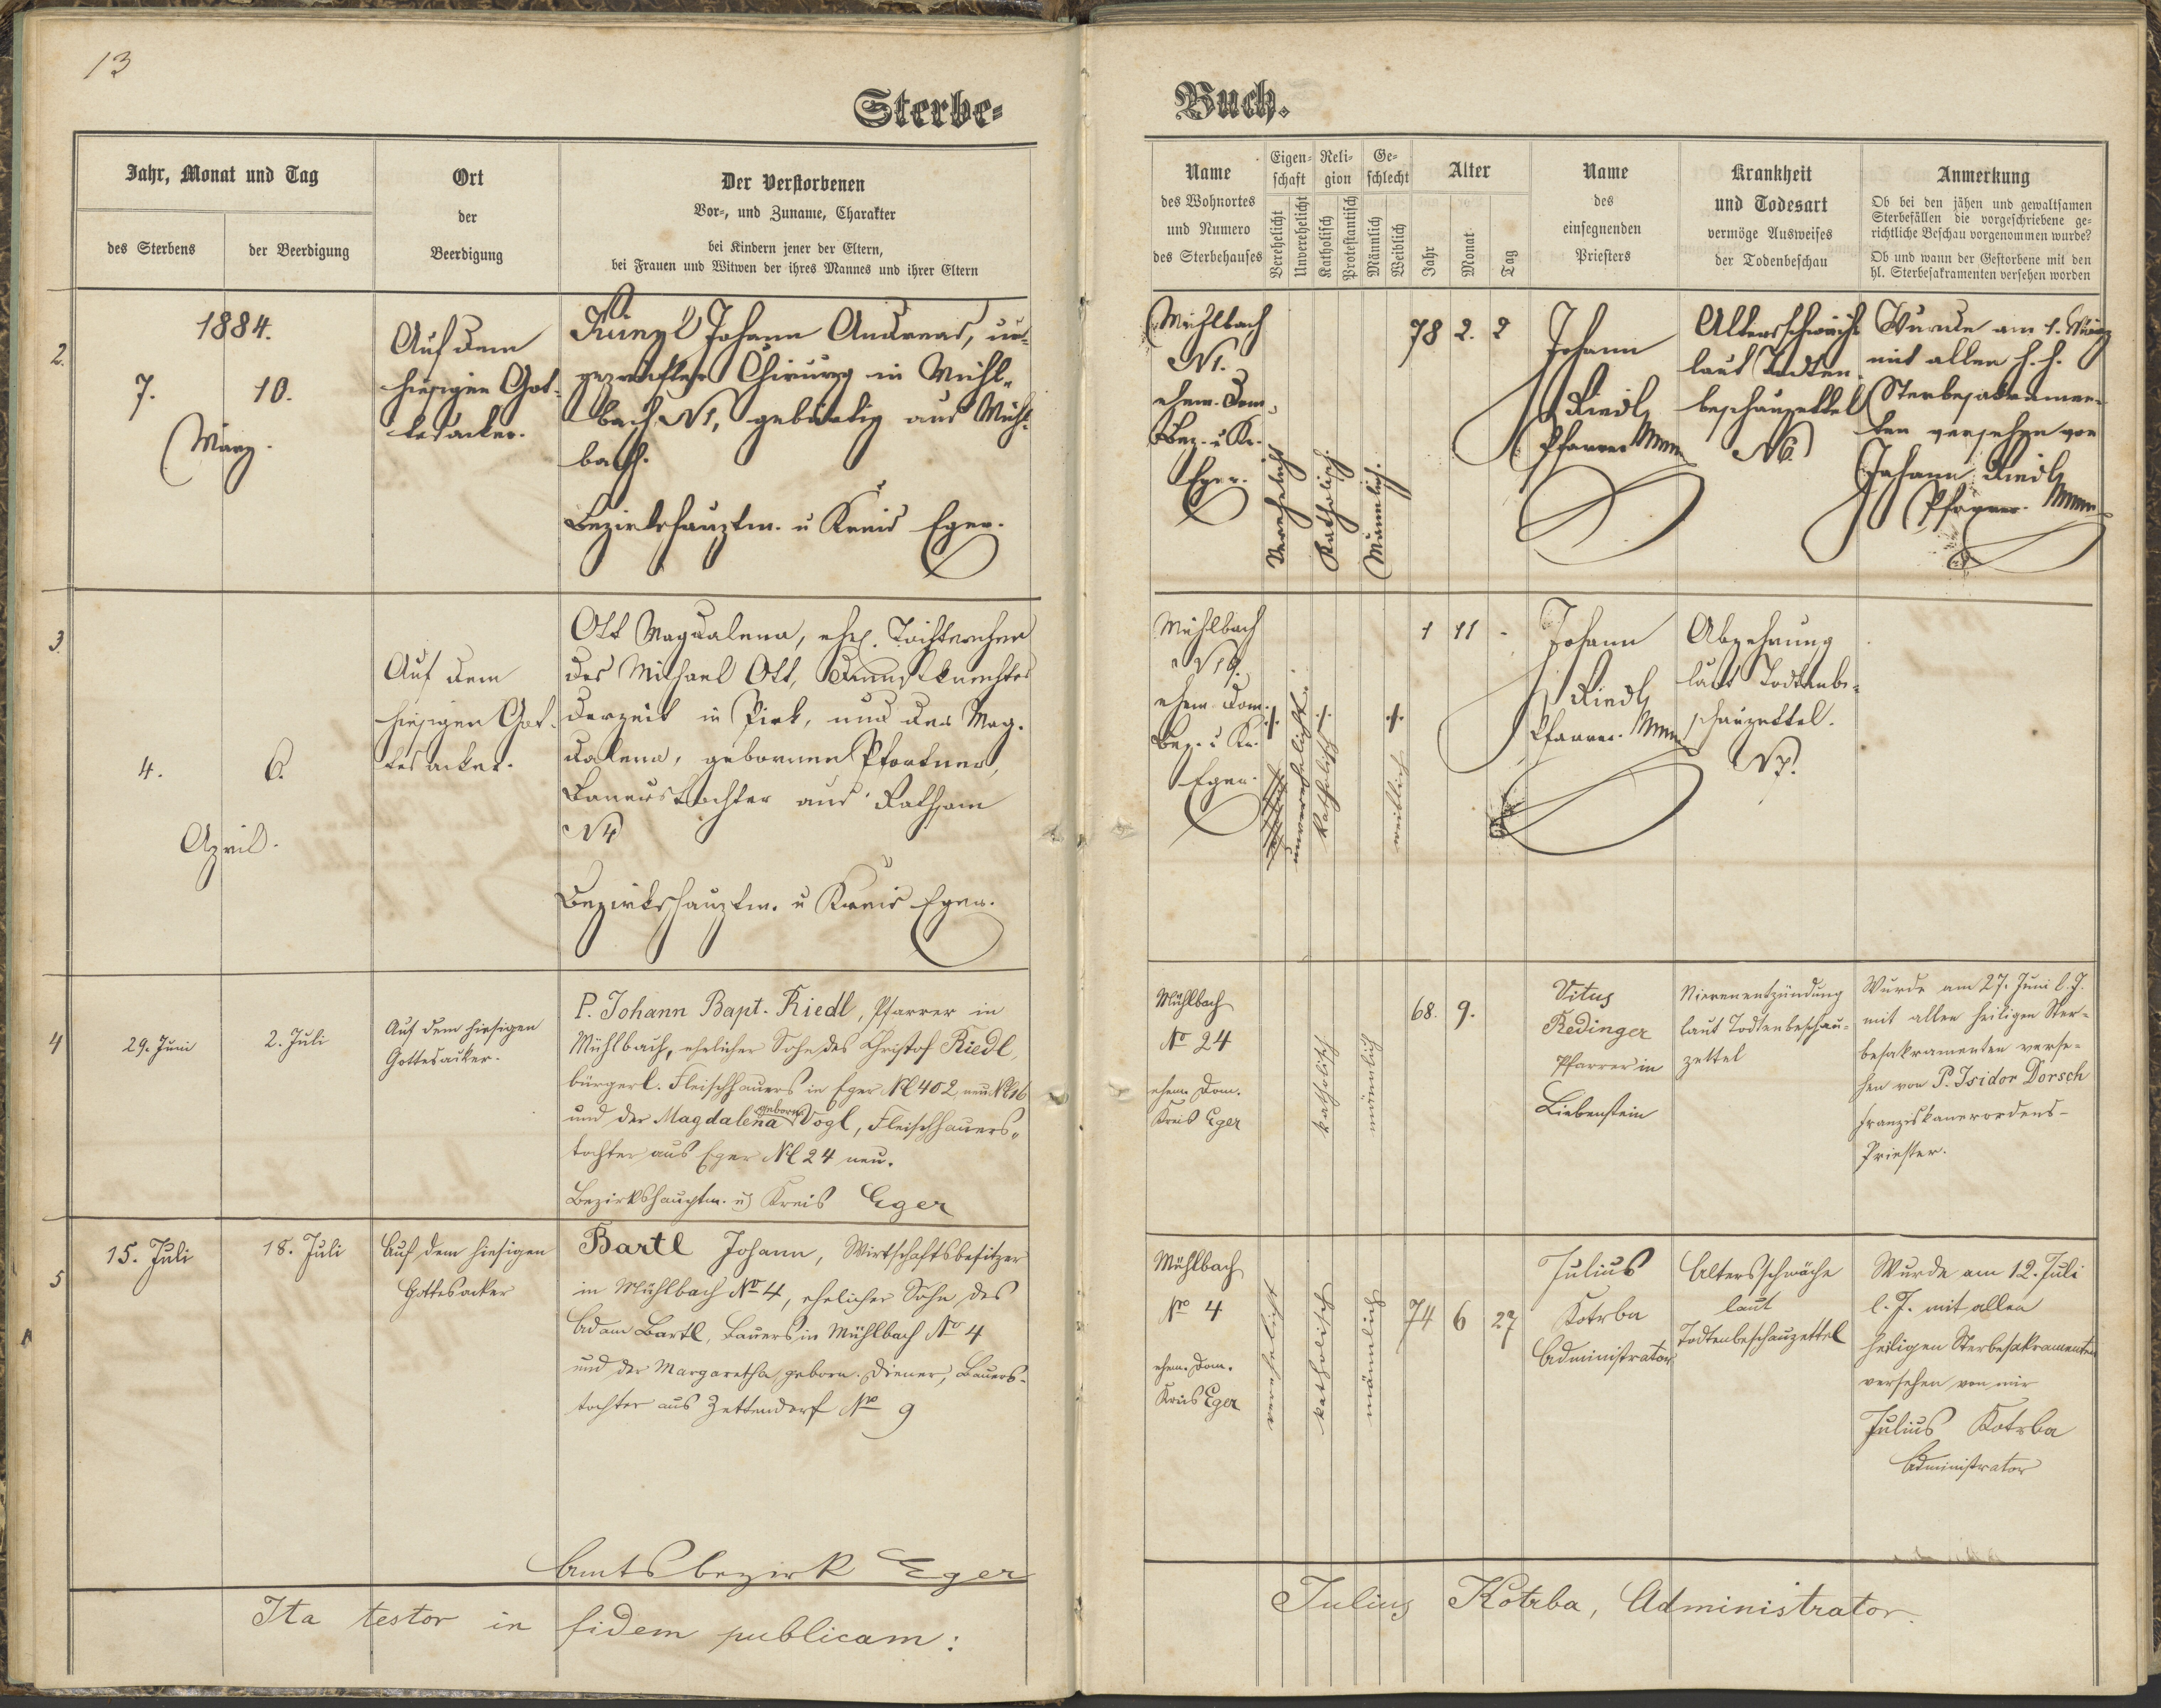 13
Sterbe-
Buch.
Jahr, Monat und Tag
des Sterbens
der Beerdigung
Ort
der
Beerdigung
Der Verstorbenen
Vor-, und Zuname, Charakter
bei Kindern jener der Eltern,
bei Frauen und Witwen der ihres Mannes und ihrer Eltern
Name
des Wohnortes
und Numero
des Sterbehauses
Eigen-
schaft
Verehelicht
Unverehelicht
Reli-
gion
Katholisch
Protestantisch
Ge-
schlecht
Männlich
Weiblich
Alter
Jahr
Monat
Tag
Name
des
einsegnenden
Priesters
Krankheit
und Todesart
vermöge Ausweises
der Todenbeschau
Anmerkung
Ob bei den jähen und gewaltsamen
Sterbefällen die vorgeschriebene ge-
richtliche Beschau vorgenommen wurde?
Ob und wann der Gestorbene mit den
hl. Sterbesakramenten versehen worden
2.
1884.
7.
10.
März.
Auf dem
hiesigen Got-
tesacker.
Künzl Johann Andreas,
Chirurg in Mühl-
bach N1, gebürtig aus Mühl-
bach.
Bezirkshauptm. u Kreis Eger.
Mühlbach
N1.
ehem. Dom.
Bez. u Kr.
Eger.
Verehelicht
Katholisch
Männlich.
78 2. 2
Johann
Riedl
Pfarrer
Altersschwäche
laut Todten-
beschauzettel
N6.
Wurde am 1. März
mit allen h. h.
Sterbesakramen-
ten versehen von
Johann Riedl
Pfarrer.
3.
4.
6.
April.
Auf dem
hiesigen Got-
tesacker.
Ott Magdalena, ehel. Töchterchen
des Michael Ott, Dienstknechtes
derzeit in Pirk, und der Mag-
dalena, gebornen Pfortner,
Bauerstochter aus Rathsam
N4
Bezirkshauptm. u Kreis Eger.
Mühlbach
ehem. Dom.
Bez. u Kr.
Eger.
unverehelicht.
katholisch
weiblich
1 11 -
Johann
Riedl
Pfarrer.
Abzehrung
laut Todtenbe-
schauzettel.
N7.
4
29. Juni
2. Juli
Auf dem hiesigen
Gottesacker.
P. Johann Bapt. Riedl, Pfarrer in
Mühlbach, ehelicher Sohn des Christof Riedl,
bürgerl. Fleischhauers in Eger № 402, neu № 16
und der Magdalena geborne Vogl, Fleischhauers-
tochter aus Eger № 24 neu.
Bezirkshauptm. u Kreis Eger
Mühlbach
No 24
ehem. Dom.
Kreis Eger
katholisch
männlich
68. 9.
Vitus
Redinger
Pfarrer in
Liebenstein
Nierenentzündung
laut Todtenbeschau-
zettel
Wurde am 27. Juni l. J.
mit allen heiligen Ster-
besakramenten verse-
hen von P. Isidor Dorsch
Franziskanerordens-
Priester.
5
15. Juli
18. Juli
Auf dem hiesigen
Gottesacker
Bartl Johann, Wirtschaftsbesitzer
in Mühlbach No 4, ehelicher Sohn des
Adam Bartl, Bauers in Mühlbach No 4
und der Margaretha, geborn. Diener, Bauers-
tochter aus Zettendorf No 9
Amtsbezirk Eger
Mühlbach
No 4
ehem. Dom.
Kreis Eger
verehelicht
katholisch
männlich
74 6 27
Julius
Kotrba
Administrator
Altersschwäche
laut
Todtenbeschauzettel
Wurde am 12. Juli
l. J. mit allen
heiligen Sterbesakramenten
versehen von mir
Julius Kotrba
Administrator
Ita testor in fidem publicam:
Julius Kotrba, Administrator.